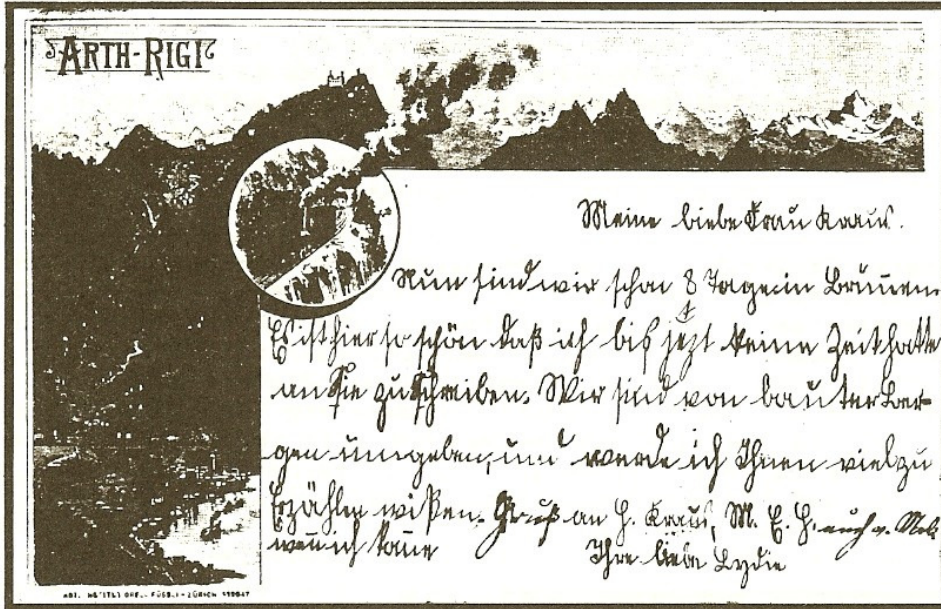 ARTH-RIGI
Meine liebe Frau Kraus.
Nun sind wir schon 8 Tage in Brunnen.
Es ist hier so schön daß ich bis jetzt keine Zeit hatte
an Sie zu schreiben. Wir sind von lauter Ber-
gen umgeben, und werde ich Ihnen viel zu
Erzählen wißen. Gruß an H. Kraus, M. E. H. auch v.
wen ich kane
Ihre liebe Lydie
ORELL FÜSSLI - ZÜRICH